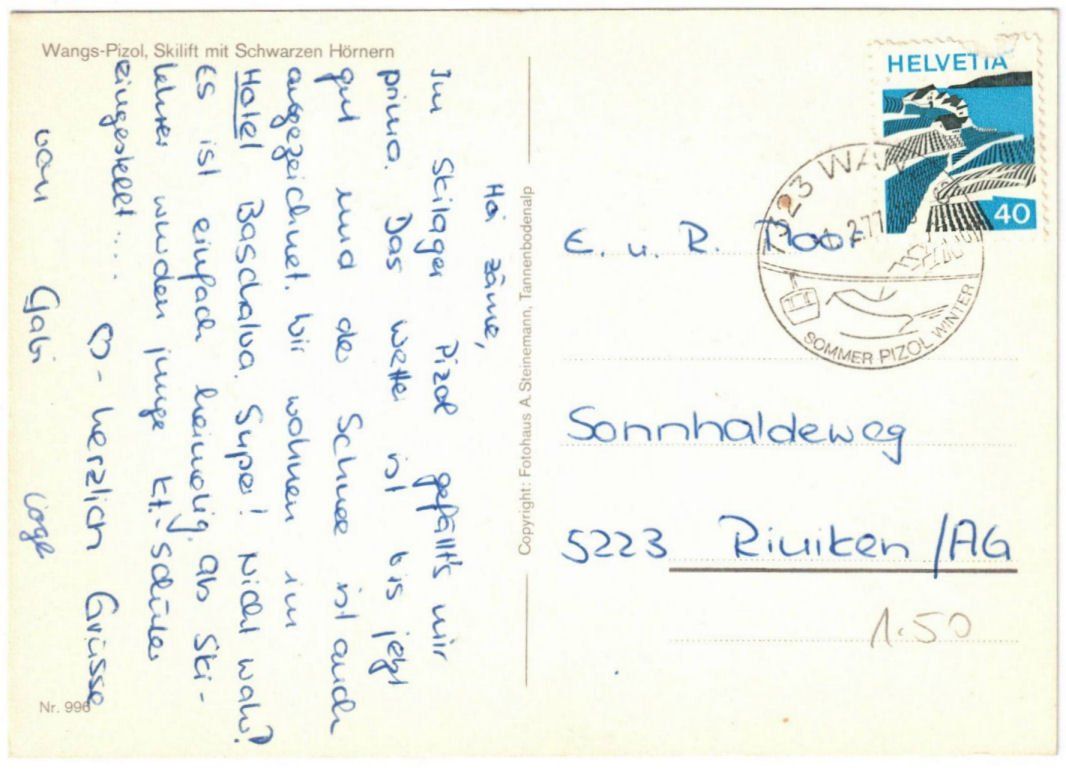 Wangs-Pizol, Skilift mit Schwarzen Hörnern
Hoi zäme,
Im Skilager Pizol gefällt's mir
prima. Das Wetter ist bis jetzt
gut und der Schnee ist auch
ausgezeichnet. Wir wohnen im
Hotel Baschalva. Super! Nicht wahr?
Es ist einfach heimelig. Als Ski-
lehrer wurden junge Kt.-Schüler
eingestellt....
♡-herzlich Grüsse
von Gabi
Nr. 996
Copyright: Fotohaus A. Steinemann, Tannenbodenalp
HELVETIA
40
7323 WAN
2.77
SOMMER PIZOL WINTER
E. u. R.
Sonnhaldeweg
5223 Riniken /AG
1.50